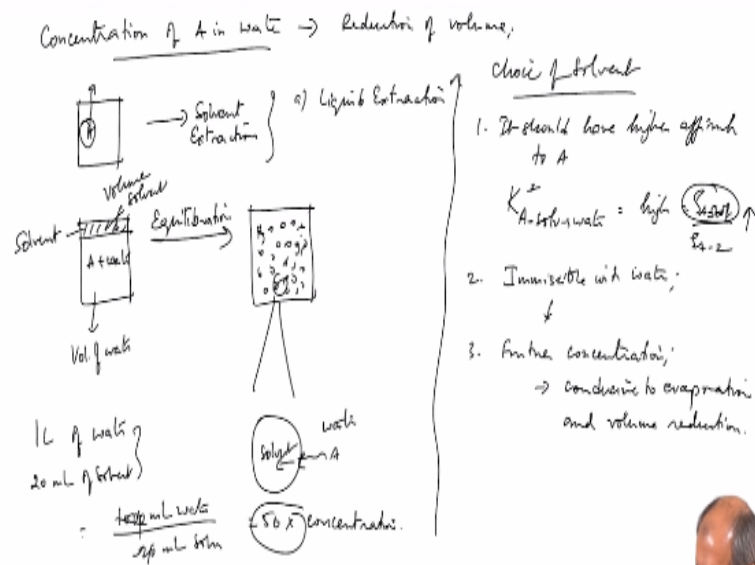 Concentration of A in water → Reduction of volume;
A
→ Solvent Extraction
a) Liquid Extraction
volume solvent
Solvent
Equilibration
A + water
Vol. of water
1L of water
20 mL of solvent
water
Solvent
A
= 1000 mL water
20 mL solvn
= 50 x concentration.
Choice of Solvent
1. It should have higher affinity
to A
K* A-solv-water = high
2. Immiscible with water;
↓
3. Further concentration;
→ conducive to evaporation
and volume reduction.